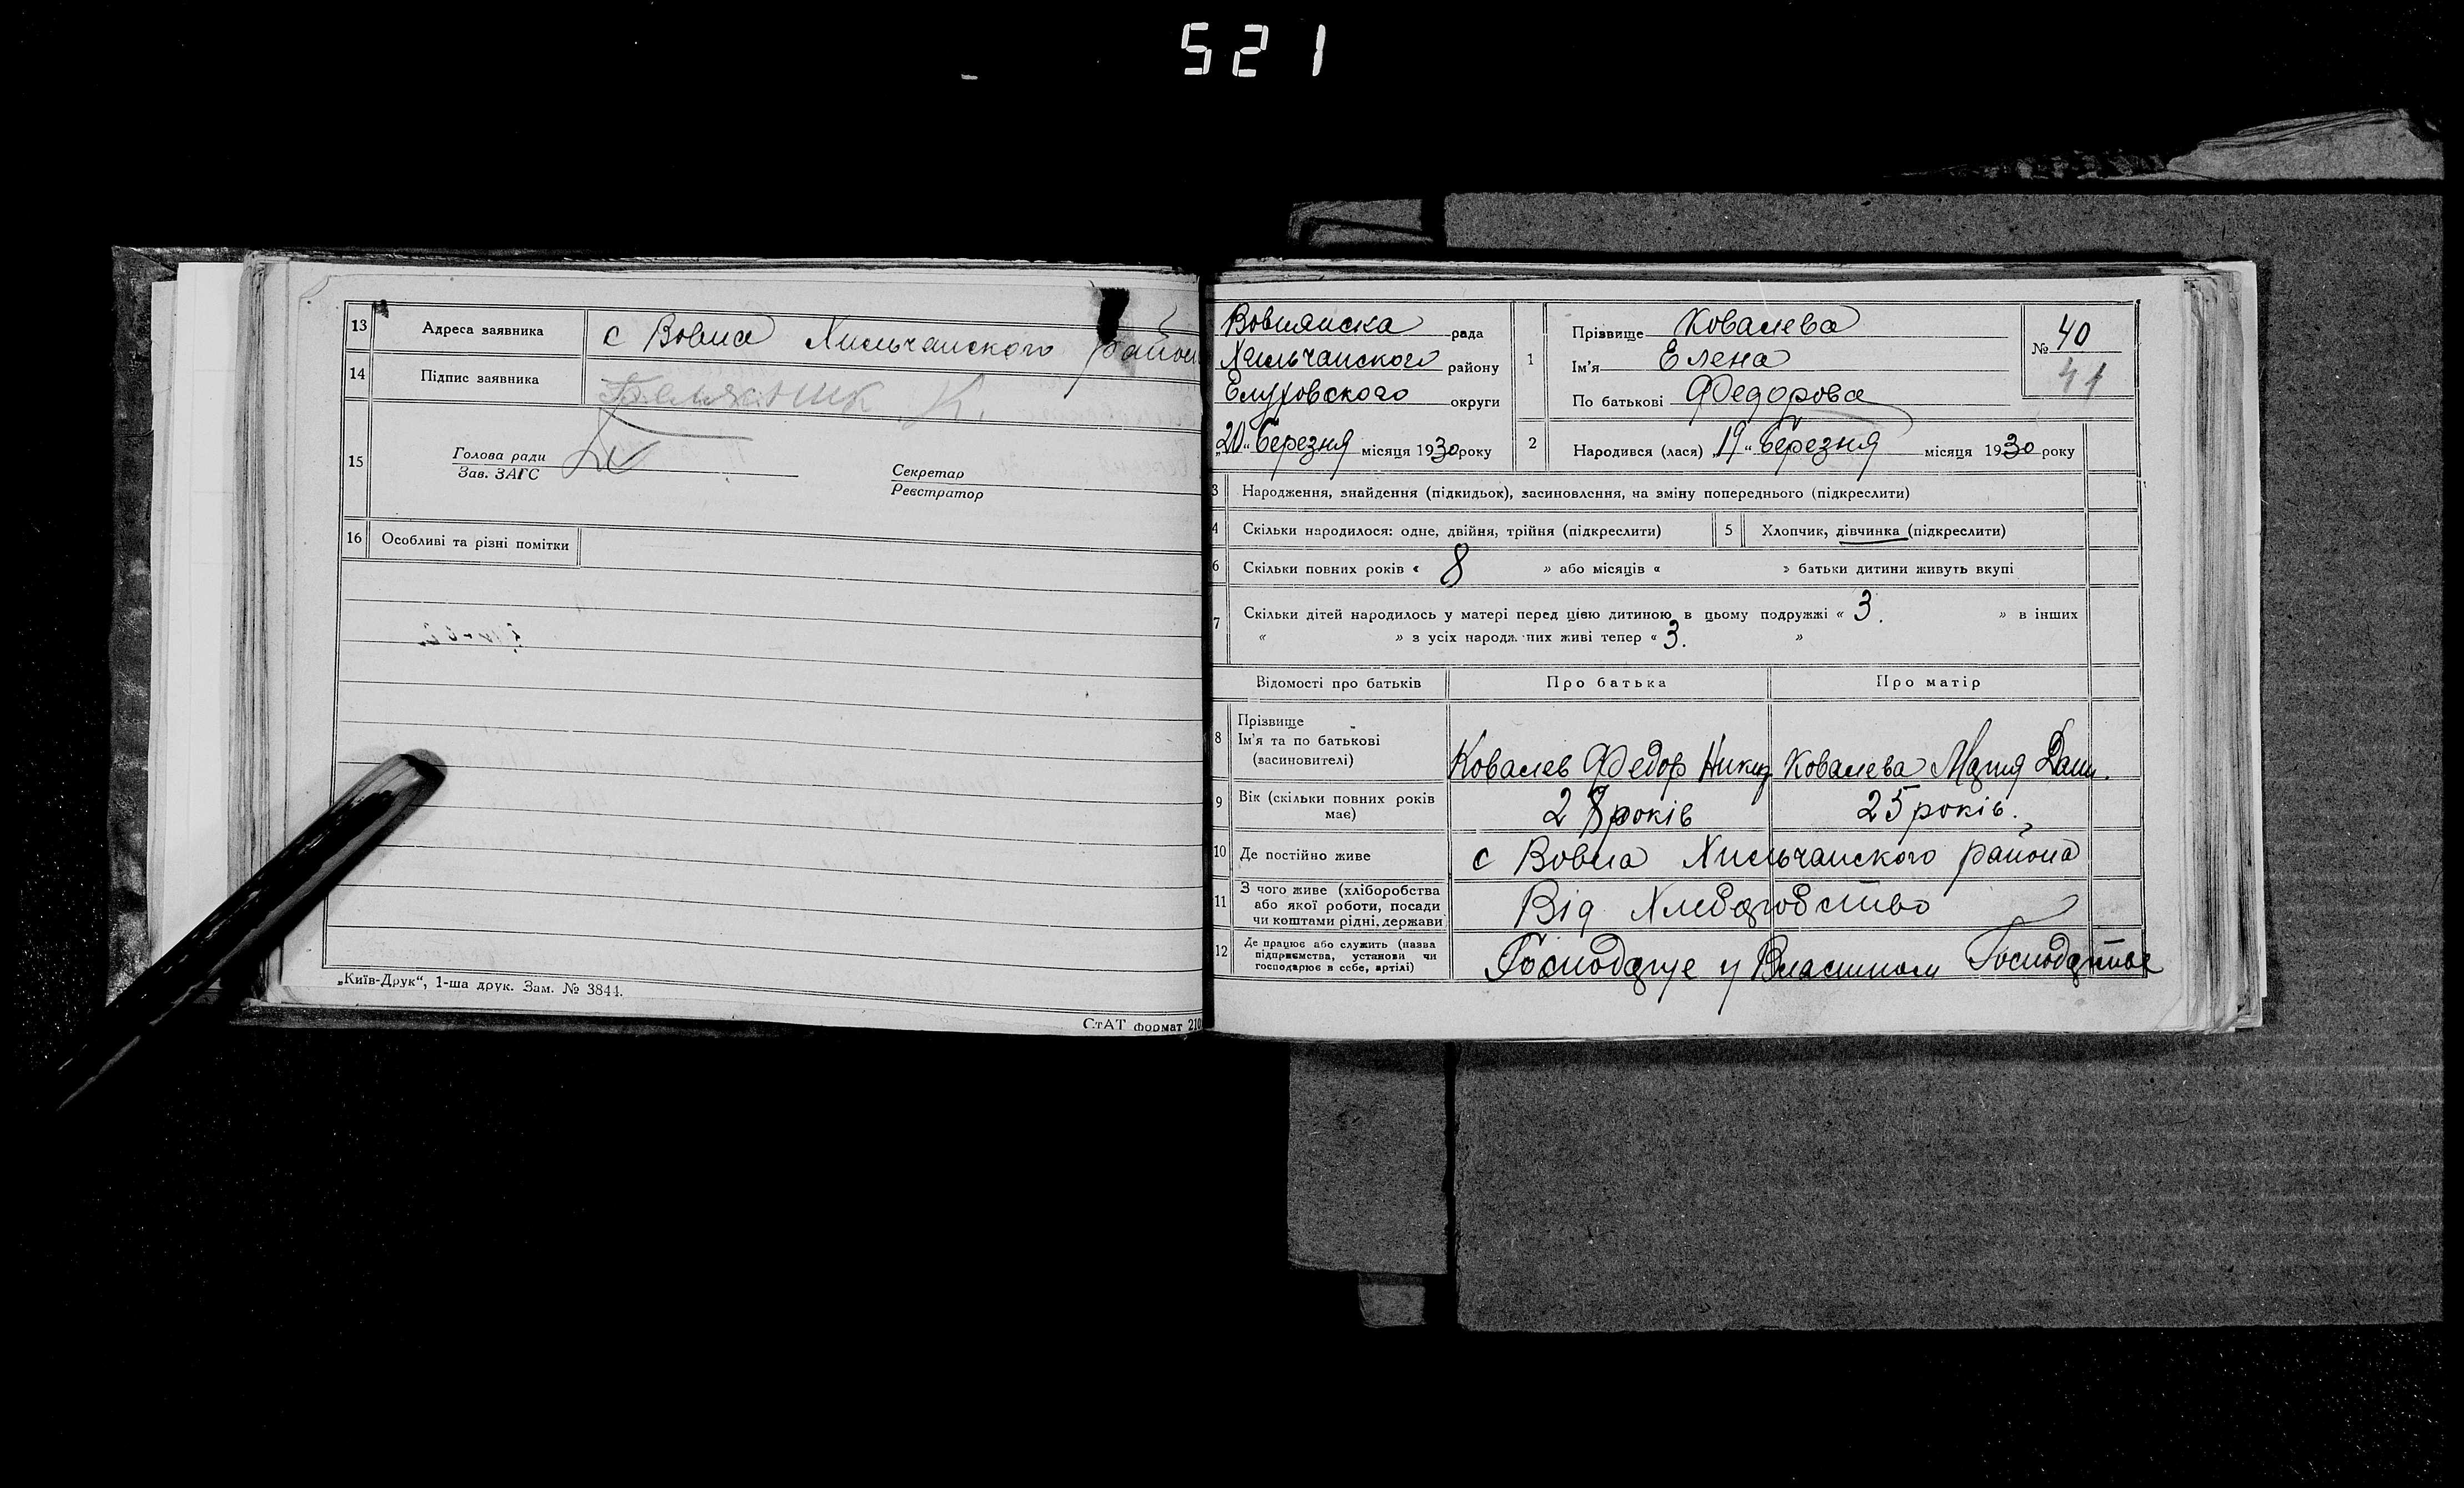 521
13 Адреса заявника с Вовна Хильчанского район
14 Підпис заявника К.
15 Голова ради
Зав. ЗАГС
Секретар
Реєстратор
16 Особливі та різні помітки
„Київ-Друк“, 1-ша друк. Зам. № 3844.
СтАТ формат 210
Вовнянска рада
Хильчанского району
Глуховского округи
„20“ березня місяця 1930 року
1 Прізвище Ковалева
Ім'я Елена
По батькові Федорова
№ 40
41
2 Народився (лася) „19“ березня місяця 1930 року
3 Народження, знайдення (підкидьок), засиновлення, на зміну попереднього (підкреслити)
4 Скільки народилося: одне, двійня, трійня (підкреслити) 5 Хлопчик, дівчинка (підкреслити)
6 Скільки повних років « 8 » або місяців « » батьки дитини живуть вкупі
7 Скільки дітей народилось у матері перед цією дитиною в цьому подружжі « 3. » в інших
« » з усіх народжених живі тепер « 3. »
Відомості про батьків Про батька Про матір
8 Прізвище
Ім'я та по батькові
(засиновителі)
Ковалев Федор Никит Ковалева Мария Дани.
9 Вік (скільки повних років
має)
28 років 25 років.
10 Де постійно живе с Вовна Хильчанского района
11 З чого живе (хліборобства
або якої роботи, посади
чи коштами рідні, держави
Від Хлеборобство
12 Де працює або служить (назва
підприємства, установи чи
господарює в себе, артілі)
Господарує у Власином Господарстве